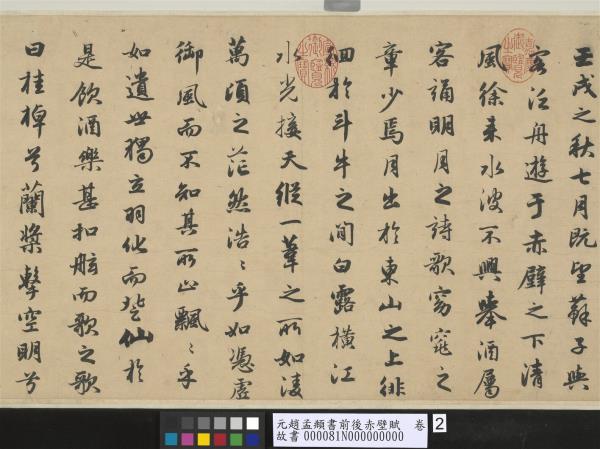 壬戌之秋七月既望蘇子與
客泛舟遊于赤壁之下清
風徐来水波不興舉酒屬
客誦明月之詩歌窈窕之
章少焉月出於東山之上徘
徊於斗牛之間白露橫江
水光接天縱一葦之所如淩
萬頃之茫然浩〻乎如馮虛
御風而不知其所止飄〻乎
如遺世獨立羽化而登仙於
是飲酒樂甚扣舷而歌之歌
曰桂棹兮蘭槳擊空明兮
元趙孟頫書前後赤壁賦 卷 2
故書 000081N000000000